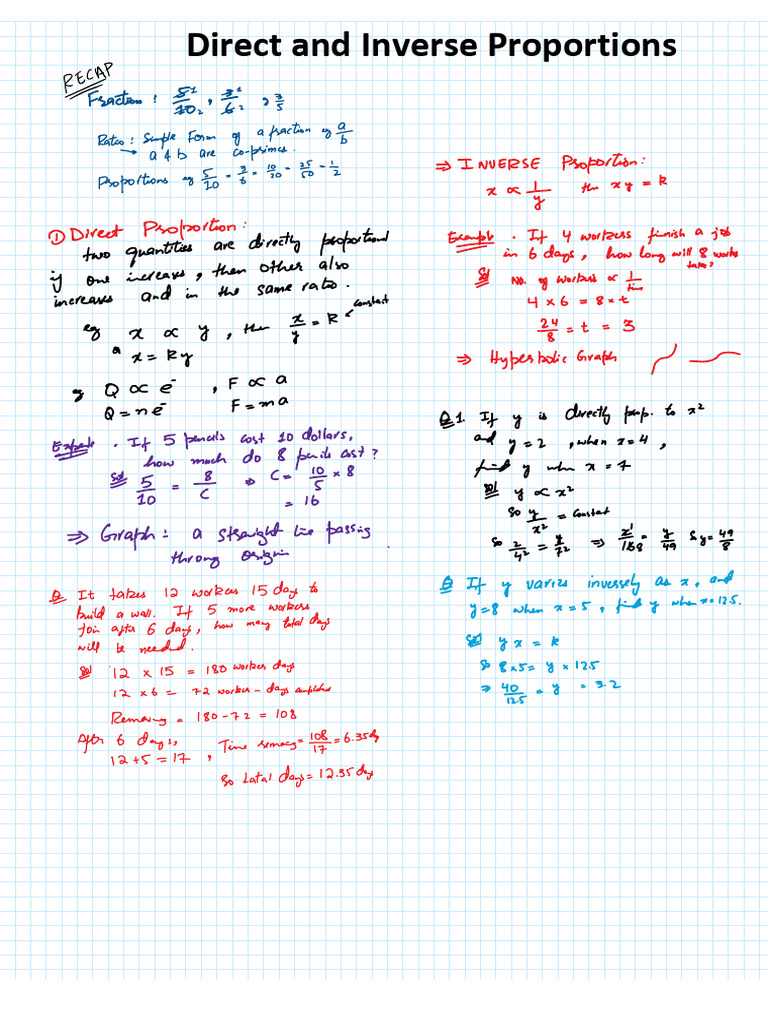 Direct and Inverse Proportions
RECAP
Fraction : 5/10 1/2 , 3/6 1/2 , 3/5
Ratio : Simple Form of a fraction eg a/b
→ a & b are co-primes.
Proportions eg 5/10 = 3/6 = 10/20 = 25/50 = 1/2
① Direct Proportion:
two quantities are directly proportional
if one increases, then other also
increases and in the same ratio.
eg x ∝ y , then x/y = k ← constant
x = ky
eg Q ∝ e⁻ , F ∝ a
Q = ne⁻ F = ma
Example . If 5 pencils cost 10 dollars,
how much do 8 pencils cost?
Sol 5/10 = 8/C ⇒ C = 10/5 × 8
= 16
⇒ Graph : a straight line passing
throng origin
Q It takes 12 workers 15 day to
build a wall. If 5 more workers
join after 6 days, how many total days
will be needed.
Sol 12 × 15 = 180 worker days
12 × 6 = 72 worker - days
Remaining = 180 - 72 = 108
After 6 days,
12 + 5 = 17 , Time = 108/17 = 6.35 day
So total days = 12.35 day
⇒ INVERSE Proportion:
x ∝ 1/y then xy = k
Example . If 4 workers finish a job
in 6 days, how long will 8 works
take?
Sol No. of workers ∝ 1/time
4 × 6 = 8 × t
24/8 = t = 3
⇒ Hyperbolic Graph
Q1. If y is directly prop. to x²
and y = 2 , when x = 4 ,
find y when x = 7
Sol y ∝ x²
So y/x² = constant
So 2/4² = y/7² ⇒ 2/16 1/8 = y/49 So y = 49/8
Q If y varies inversely as x, and
y = 8 when x = 5 , find y when x = 12.5.
Sol yx = k
So 8 × 5 = y × 12.5
⇒ 40/12.5 = y = 3.2